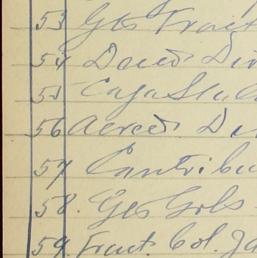 53 Gts Fract
54 Deud Div
55 Caja
56 Acreed Di
57 Contribu
58. Gts Grls
59 Fract. Col. Ja